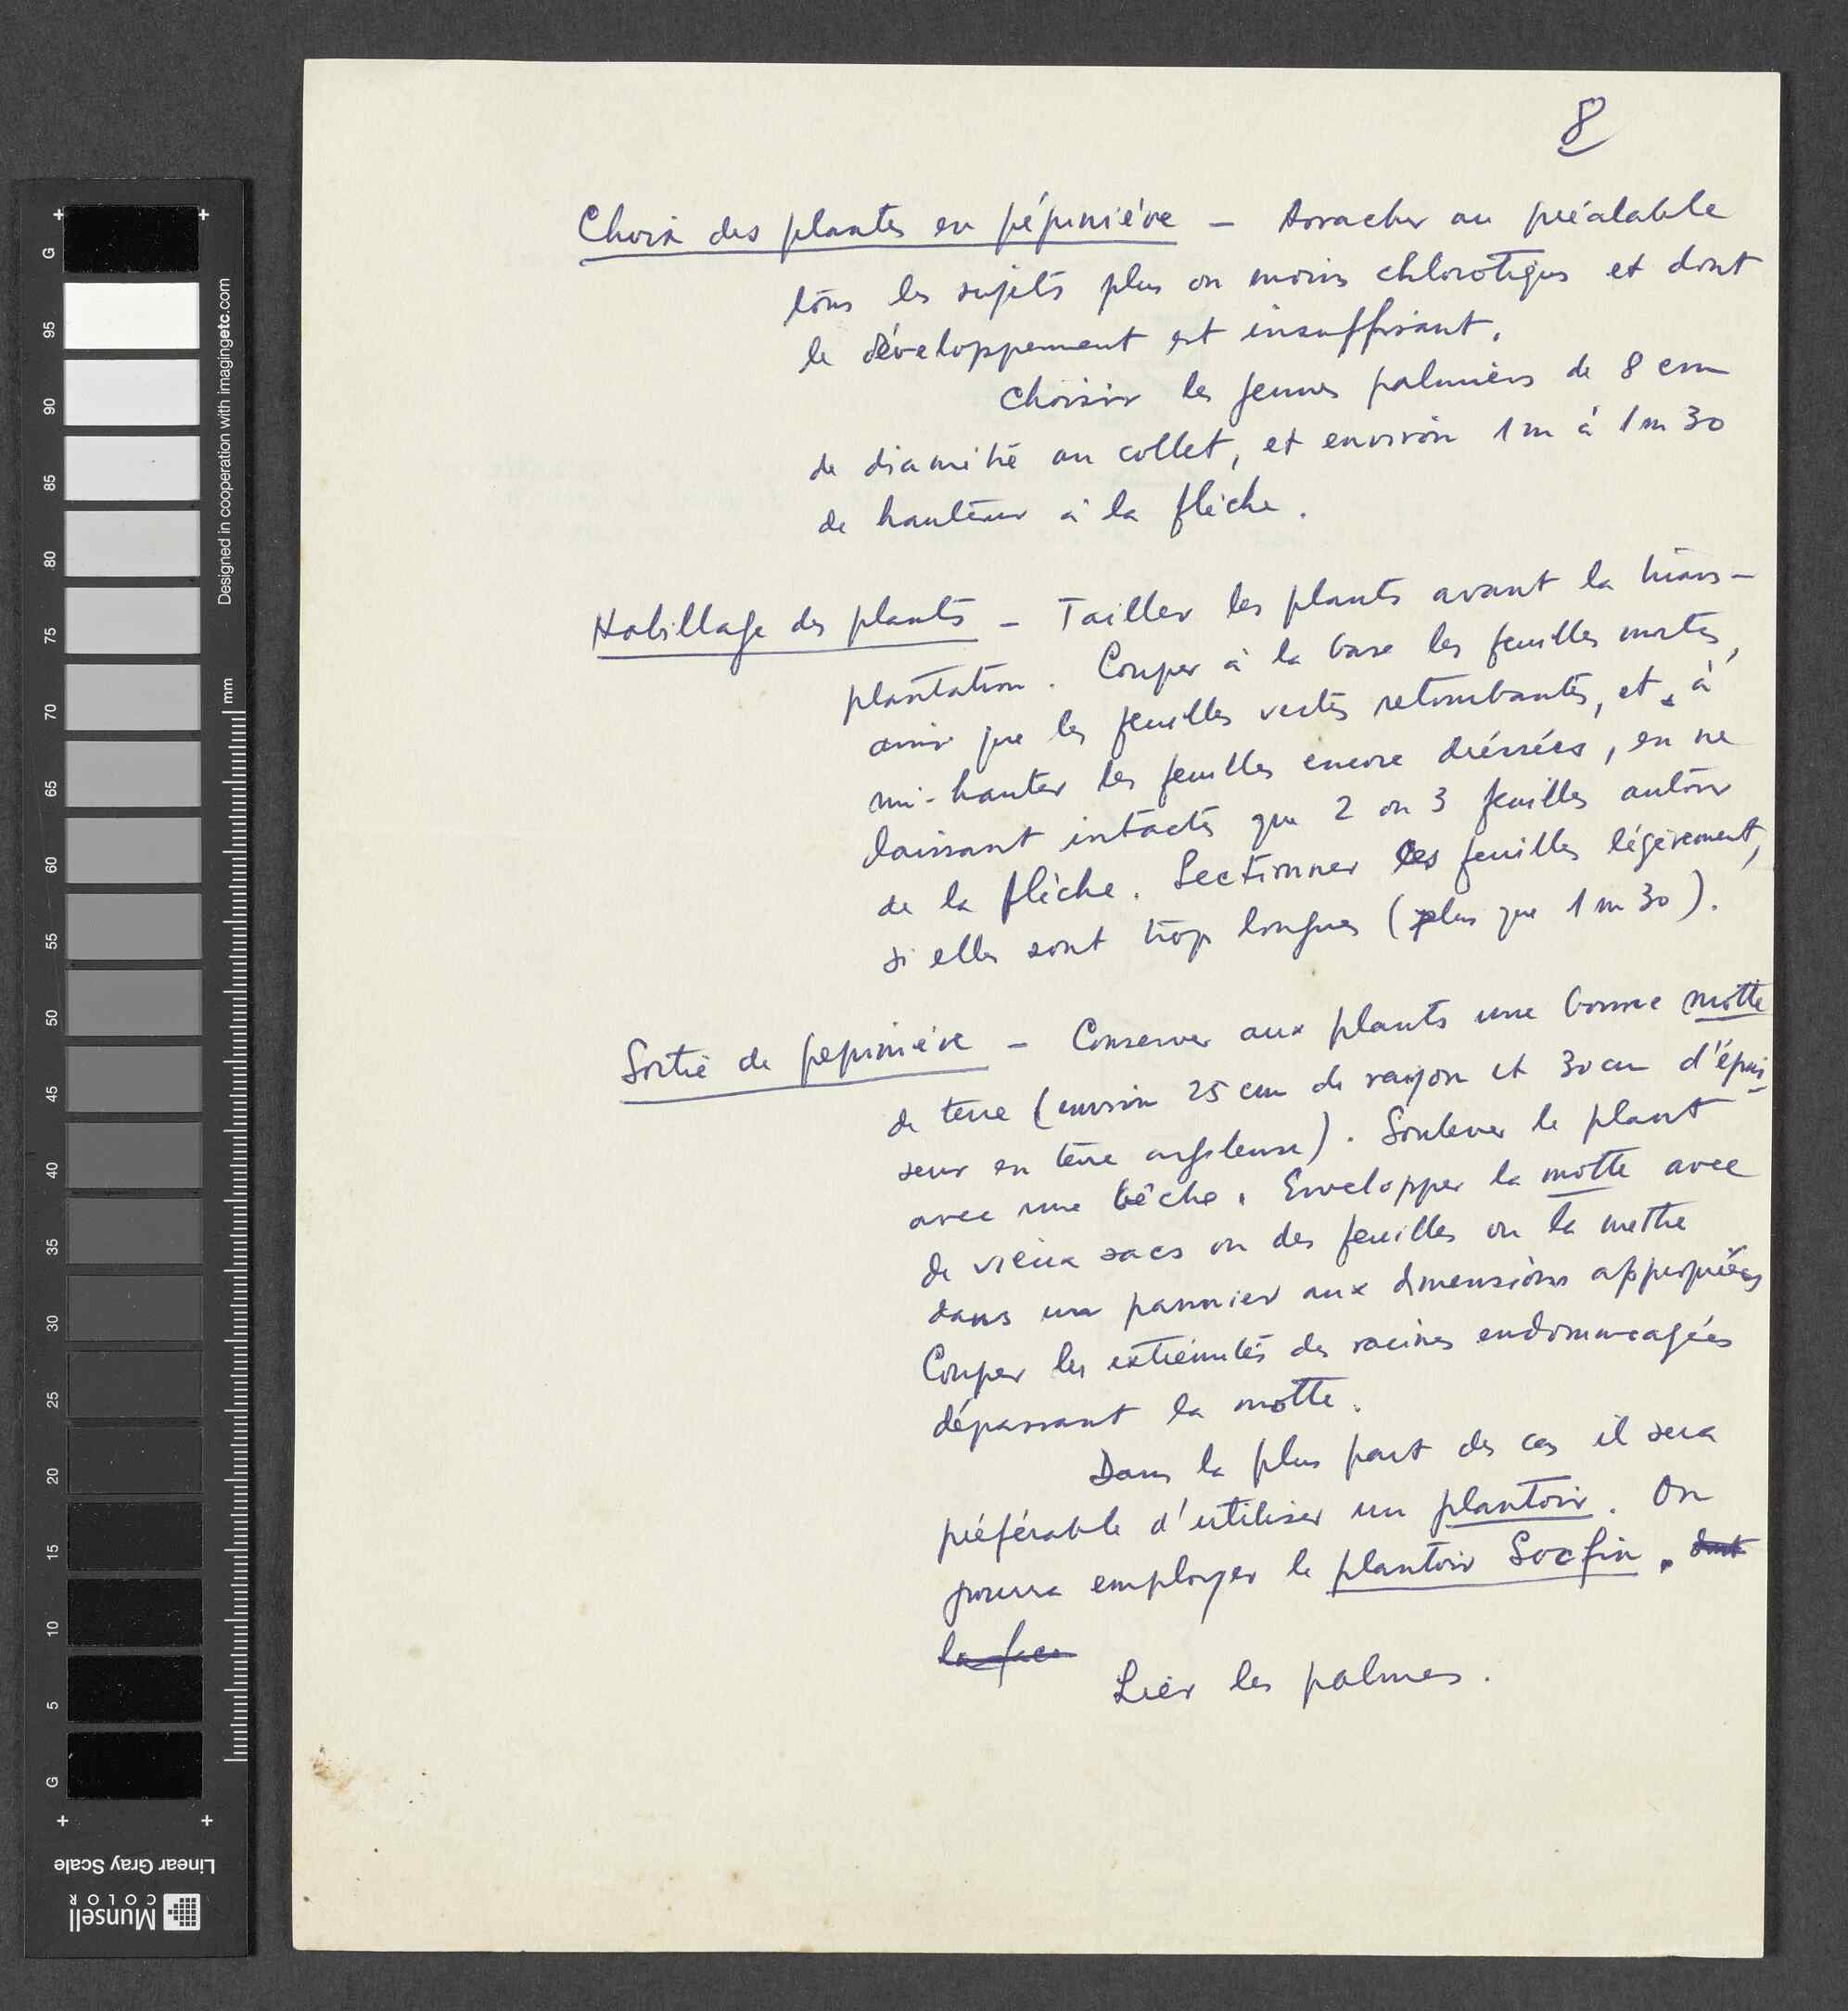 8
Choix des plantes en pépinière – Arracher au préalable
tous les sujets plus ou moins chlorotiques et dont
le développement est insuffisant.
Choisir les jeunes palmiers de 8 cm
de diamètre au collet, et environ 1 m à 1 m 30
de hauteur à la flèche.
Habillage des plants – Tailler les plants avant la trans-
plantation. Couper à la base les feuilles mortes,
ainsi que les feuilles vertes retombantes, et à
mi-hauter les feuilles encore dréssées, en ne
laissant intactes que 2 ou 3 feuilles autour
de la flèche. Sectionner les feuilles légèrement,
si elles sont trop longues (plus que 1 m 30).
Sortie de pepinière – Conserver aux plants une bonne motte
de terre (environ 25 cm de rayon et 30 cm d'épais-
seur en terre argileuse). Soulever le plant
avec une bêche. Envelopper la motte avec
de vieux sacs ou des feuilles ou la mettre
dans un pannier aux dimensions appropriées
Couper les extrémités des racines endommagées
dépassant la motte.
Dans la plus part des cas il sera
préférable d'utiliser un plantoir. On
pourra employer le plantoir Socfin. dont
la face
Lier les palmes.
G
95
90
85
80
75
70
65
60
55
50
45
40
35
30
25
20
15
10
5
G
mm
Designed in cooperation with imagingetc.com
Linear Gray Scale
Munsell
COLOR